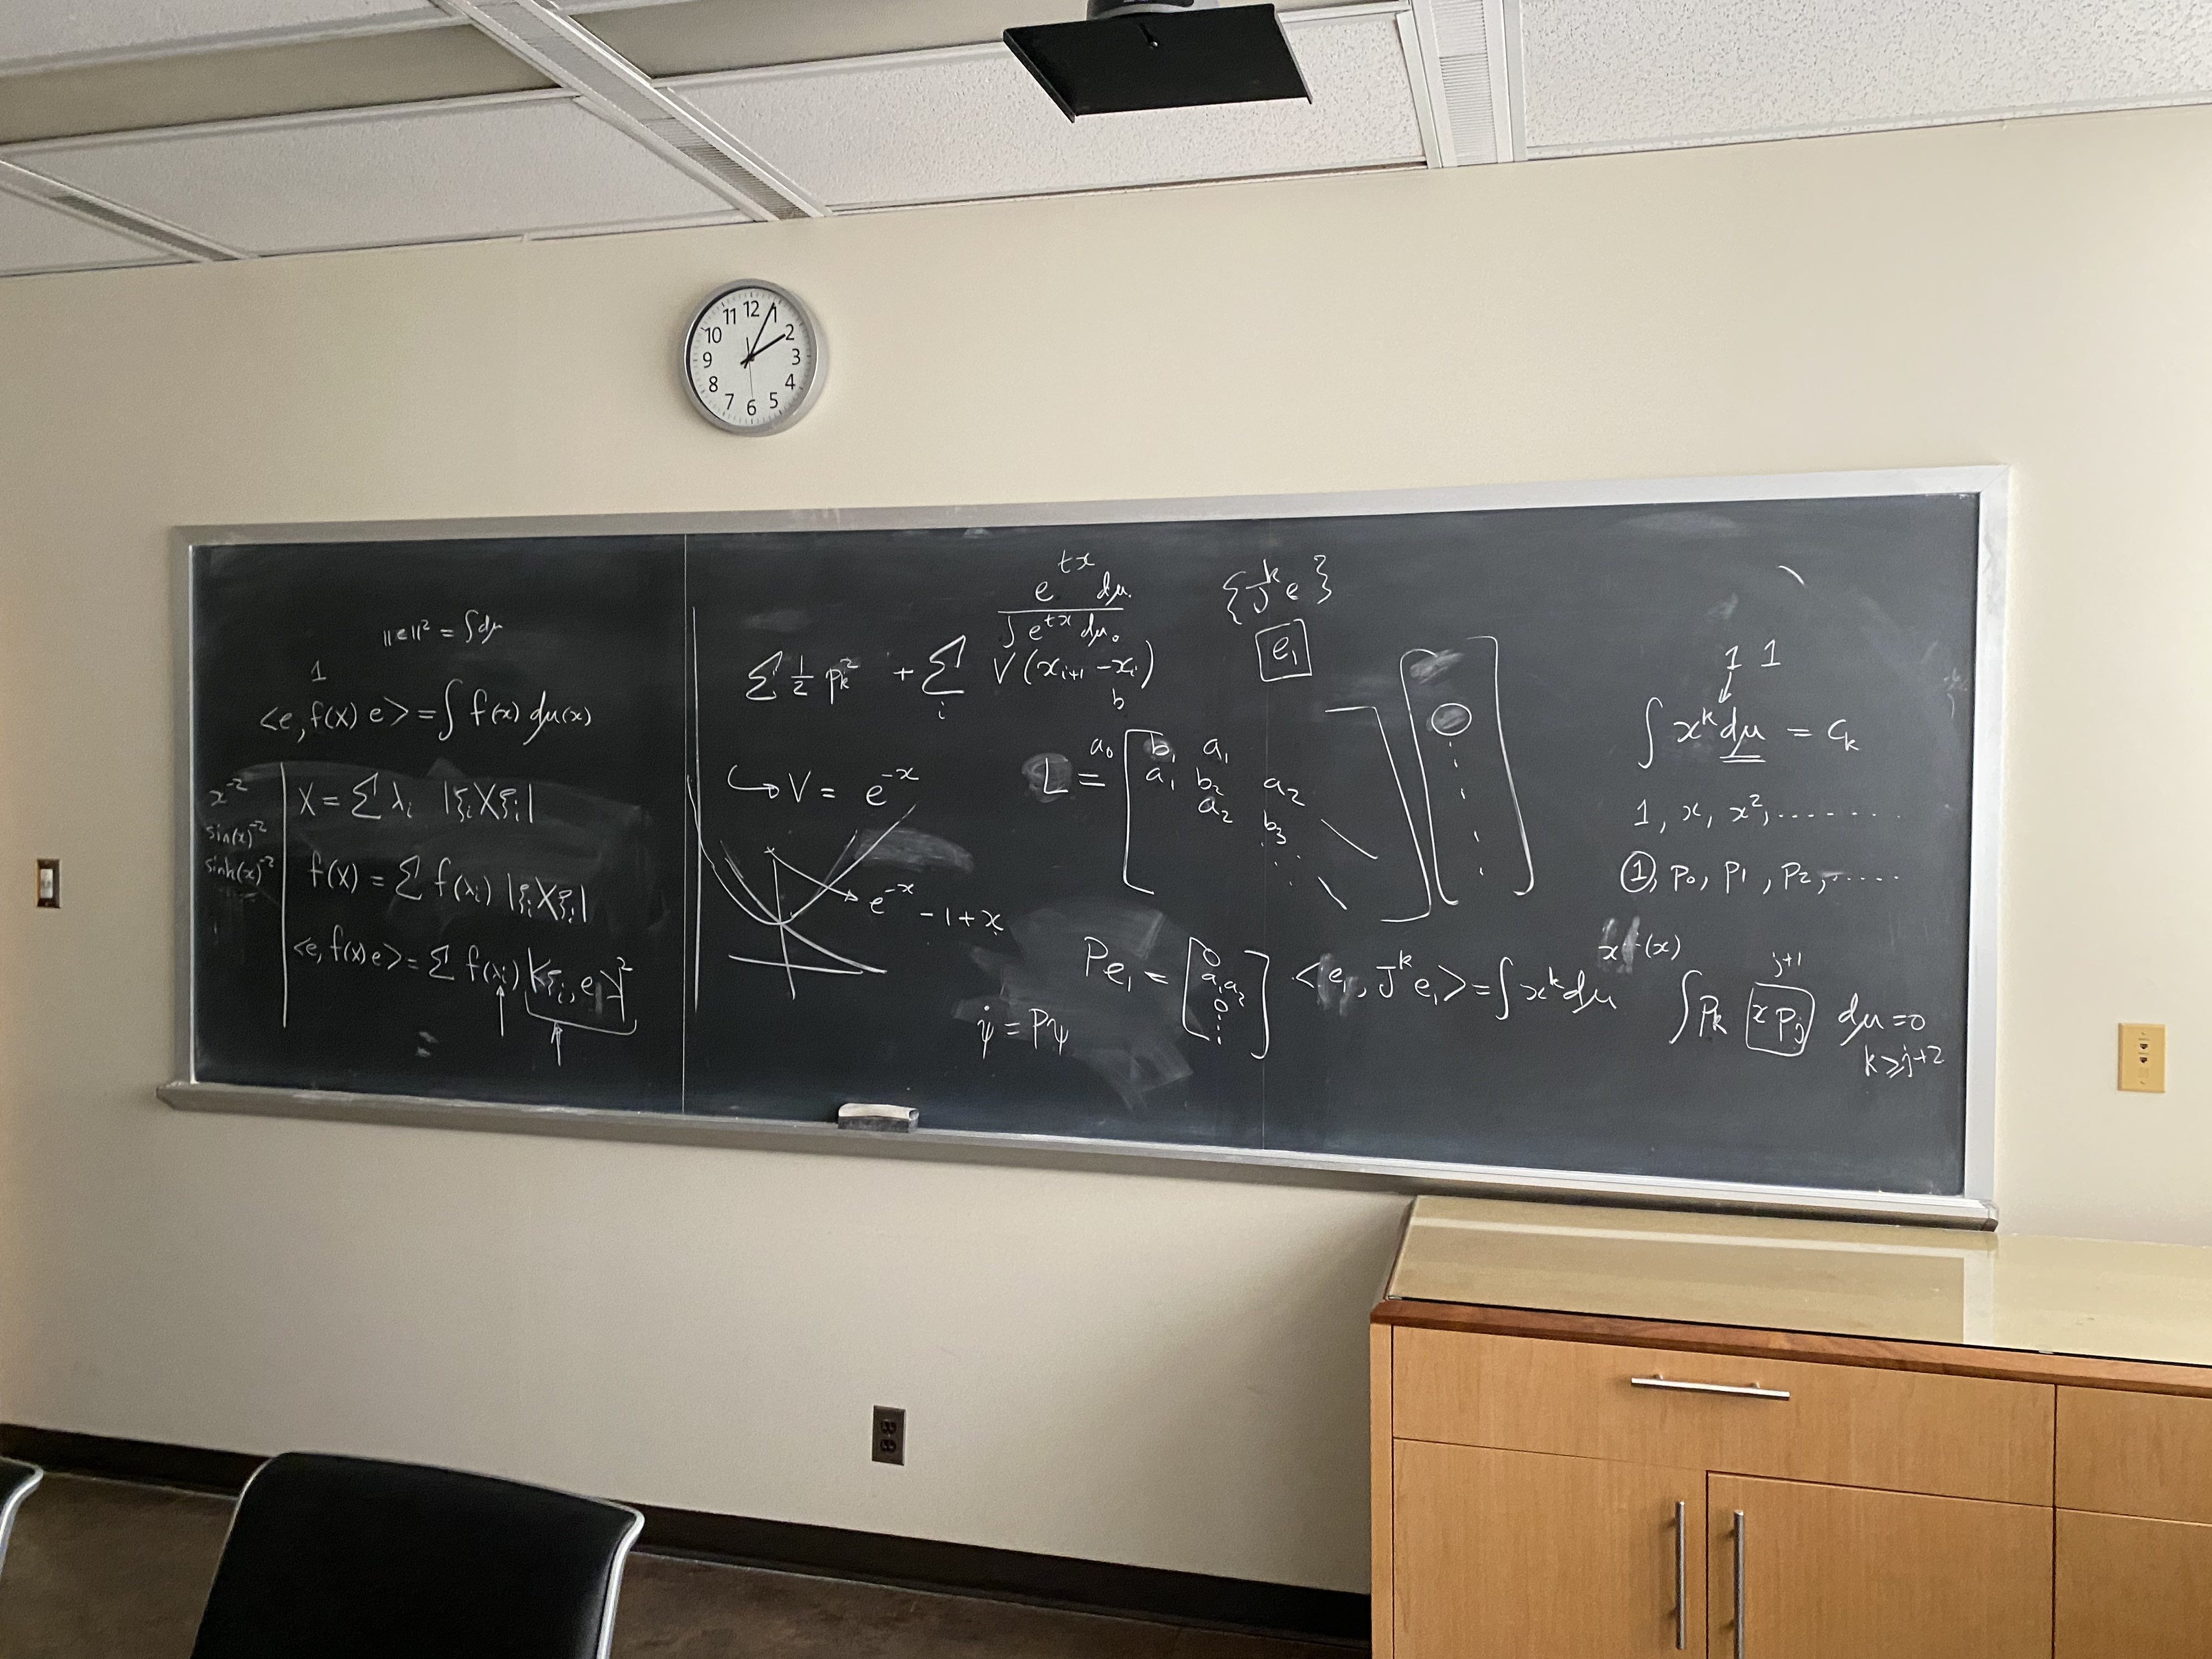 12
1
2
3
4
5
6
7
8
9
10
11
||e||² = ∫dμ
1
<e, f(X) e> = ∫ f(x) dμ(x)
x⁻²
sin(x)⁻²
sinh(x)⁻²
X = Σ λᵢ |ξᵢ X ξᵢ|
f(X) = Σ f(λᵢ) |ξᵢ X ξᵢ|
<e, f(x) e> = Σ f(λᵢ) |<ξᵢ, e₁>|²
e^{tx} dμ₀
∫ e^{tx} dμ₀
Σ ½ pₖ² + Σᵢ V(xᵢ₊₁ - xᵢ)
b
↳ V = e^{-x}
e^{-x} - 1 + x
{Jᵏ e}
e₁
L = a₀ [ b₁ a₁
a₁ b₂ a₂
a₂ b₃
Pe₁ = [ 0
a₁a₂
0
⋮ ]
ψ̇ = Pψ
<e₁, Jᵏ e₁> = ∫ xᵏ dμ
1 1
∫ xᵏ dμ = cₖ
1, x, x², ........
1, p₀, p₁, p₂, .....
(x)
j+1
∫ pₖ x pⱼ dμ = 0
k ≥ j+2